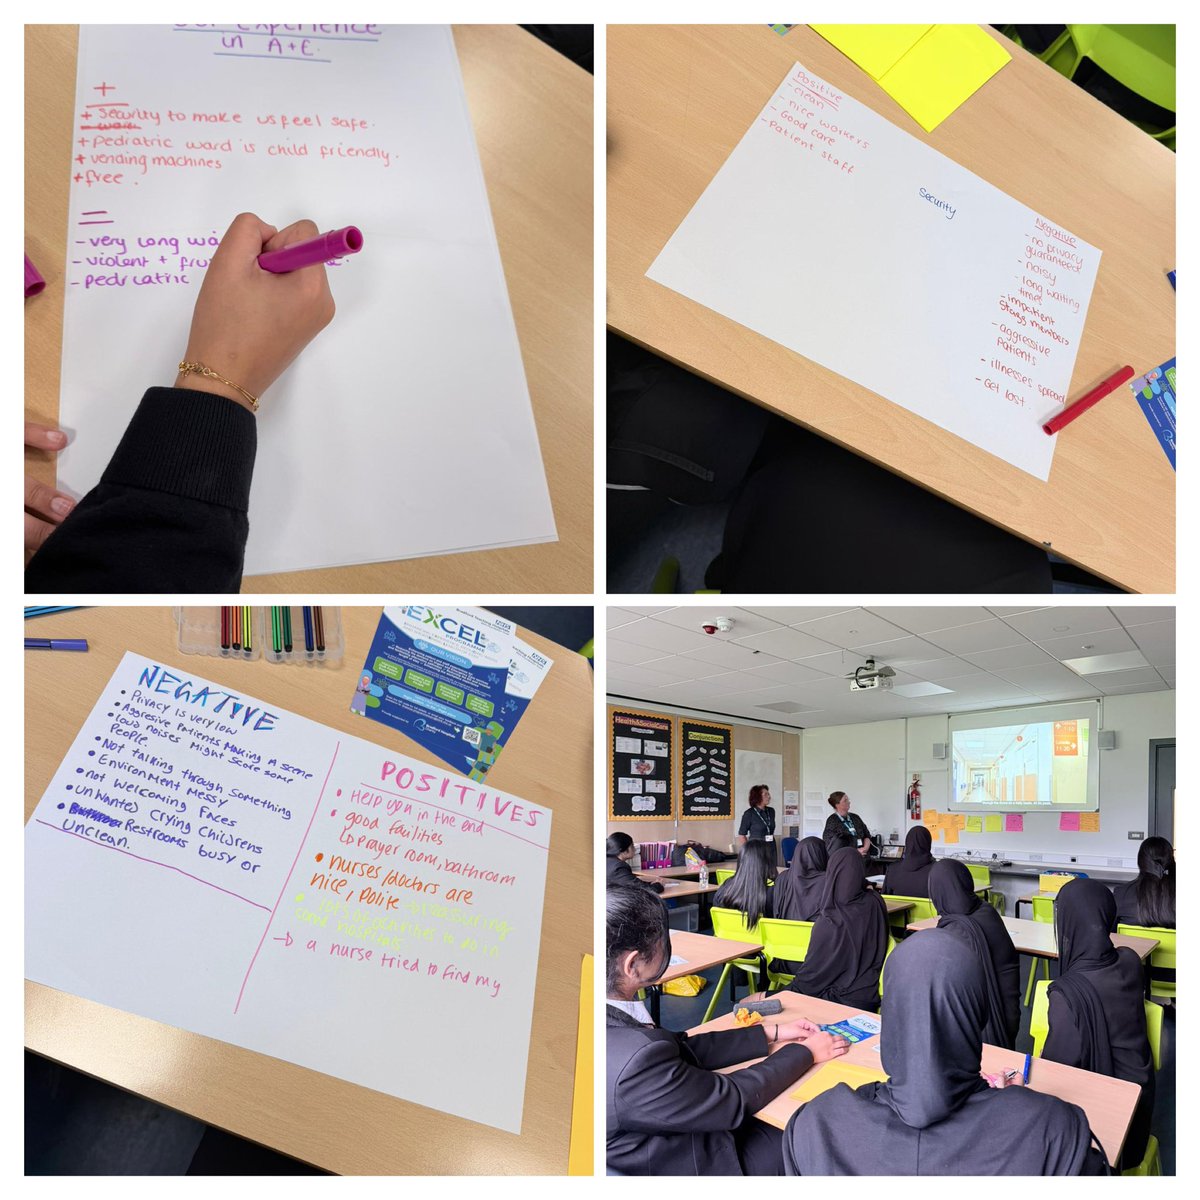 Our Experience
in A+E.
+
+ Security to make us feel safe.
+ pediatric ward is child friendly.
+ vending machines
+ free.
- very long
- violent +
- pedicatric
Positive
- clean
- nice workers
- Good care
- Patient staff
Security
Negative
- no privacy
guaranteed
- noisy
- long waiting
times
- impatient
staff members
- aggressive
Patients
- illnesses spread
- Get lost.
NEGATIVE
• Privacy is very low
• Aggresive Patients Making A scene
• loud noises Might Scare some
People.
• Not talking through something
• Environment Messy
• not Welcoming Faces
• unwanted crying childrens
• Restrooms busy or
unclean.
POSITIVES
• Help you in the end
• good facilities
↳ prayer room, bathroom
• nurses/doctors are
nice, polite + reassuring
• lots of activities to do in
hospitals
→ a nurse tried to find my
EXCEL
PROGRAMME
OUR VISION
Bradford Teaching Hospitals
NHS
Health&SocialCare
Conjunctions
EXCEL